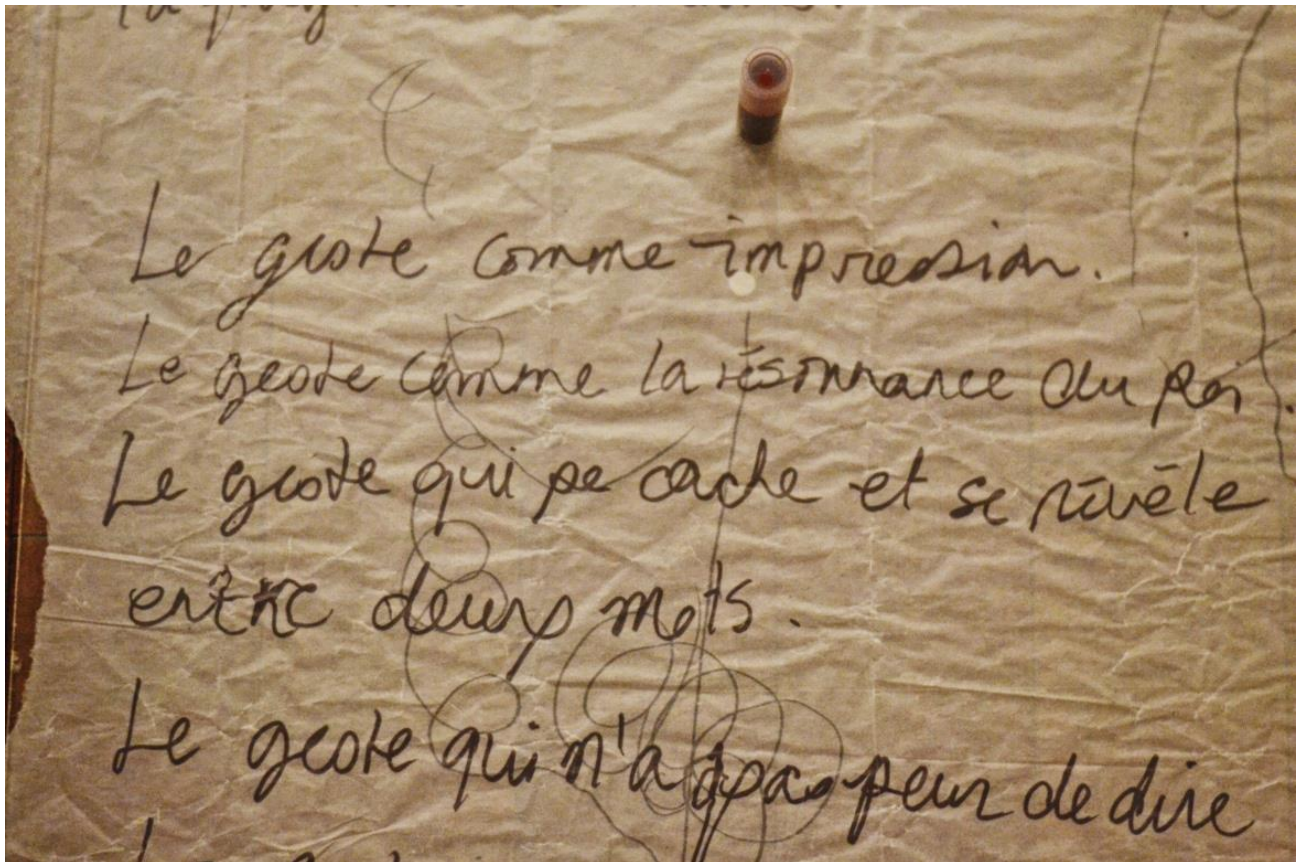 Le geste comme impression.
Le geste comme la résonnance du soi.
Le geste qui se cache et se révèle
entre deux mots.
Le geste qui n'a pas peur de dire